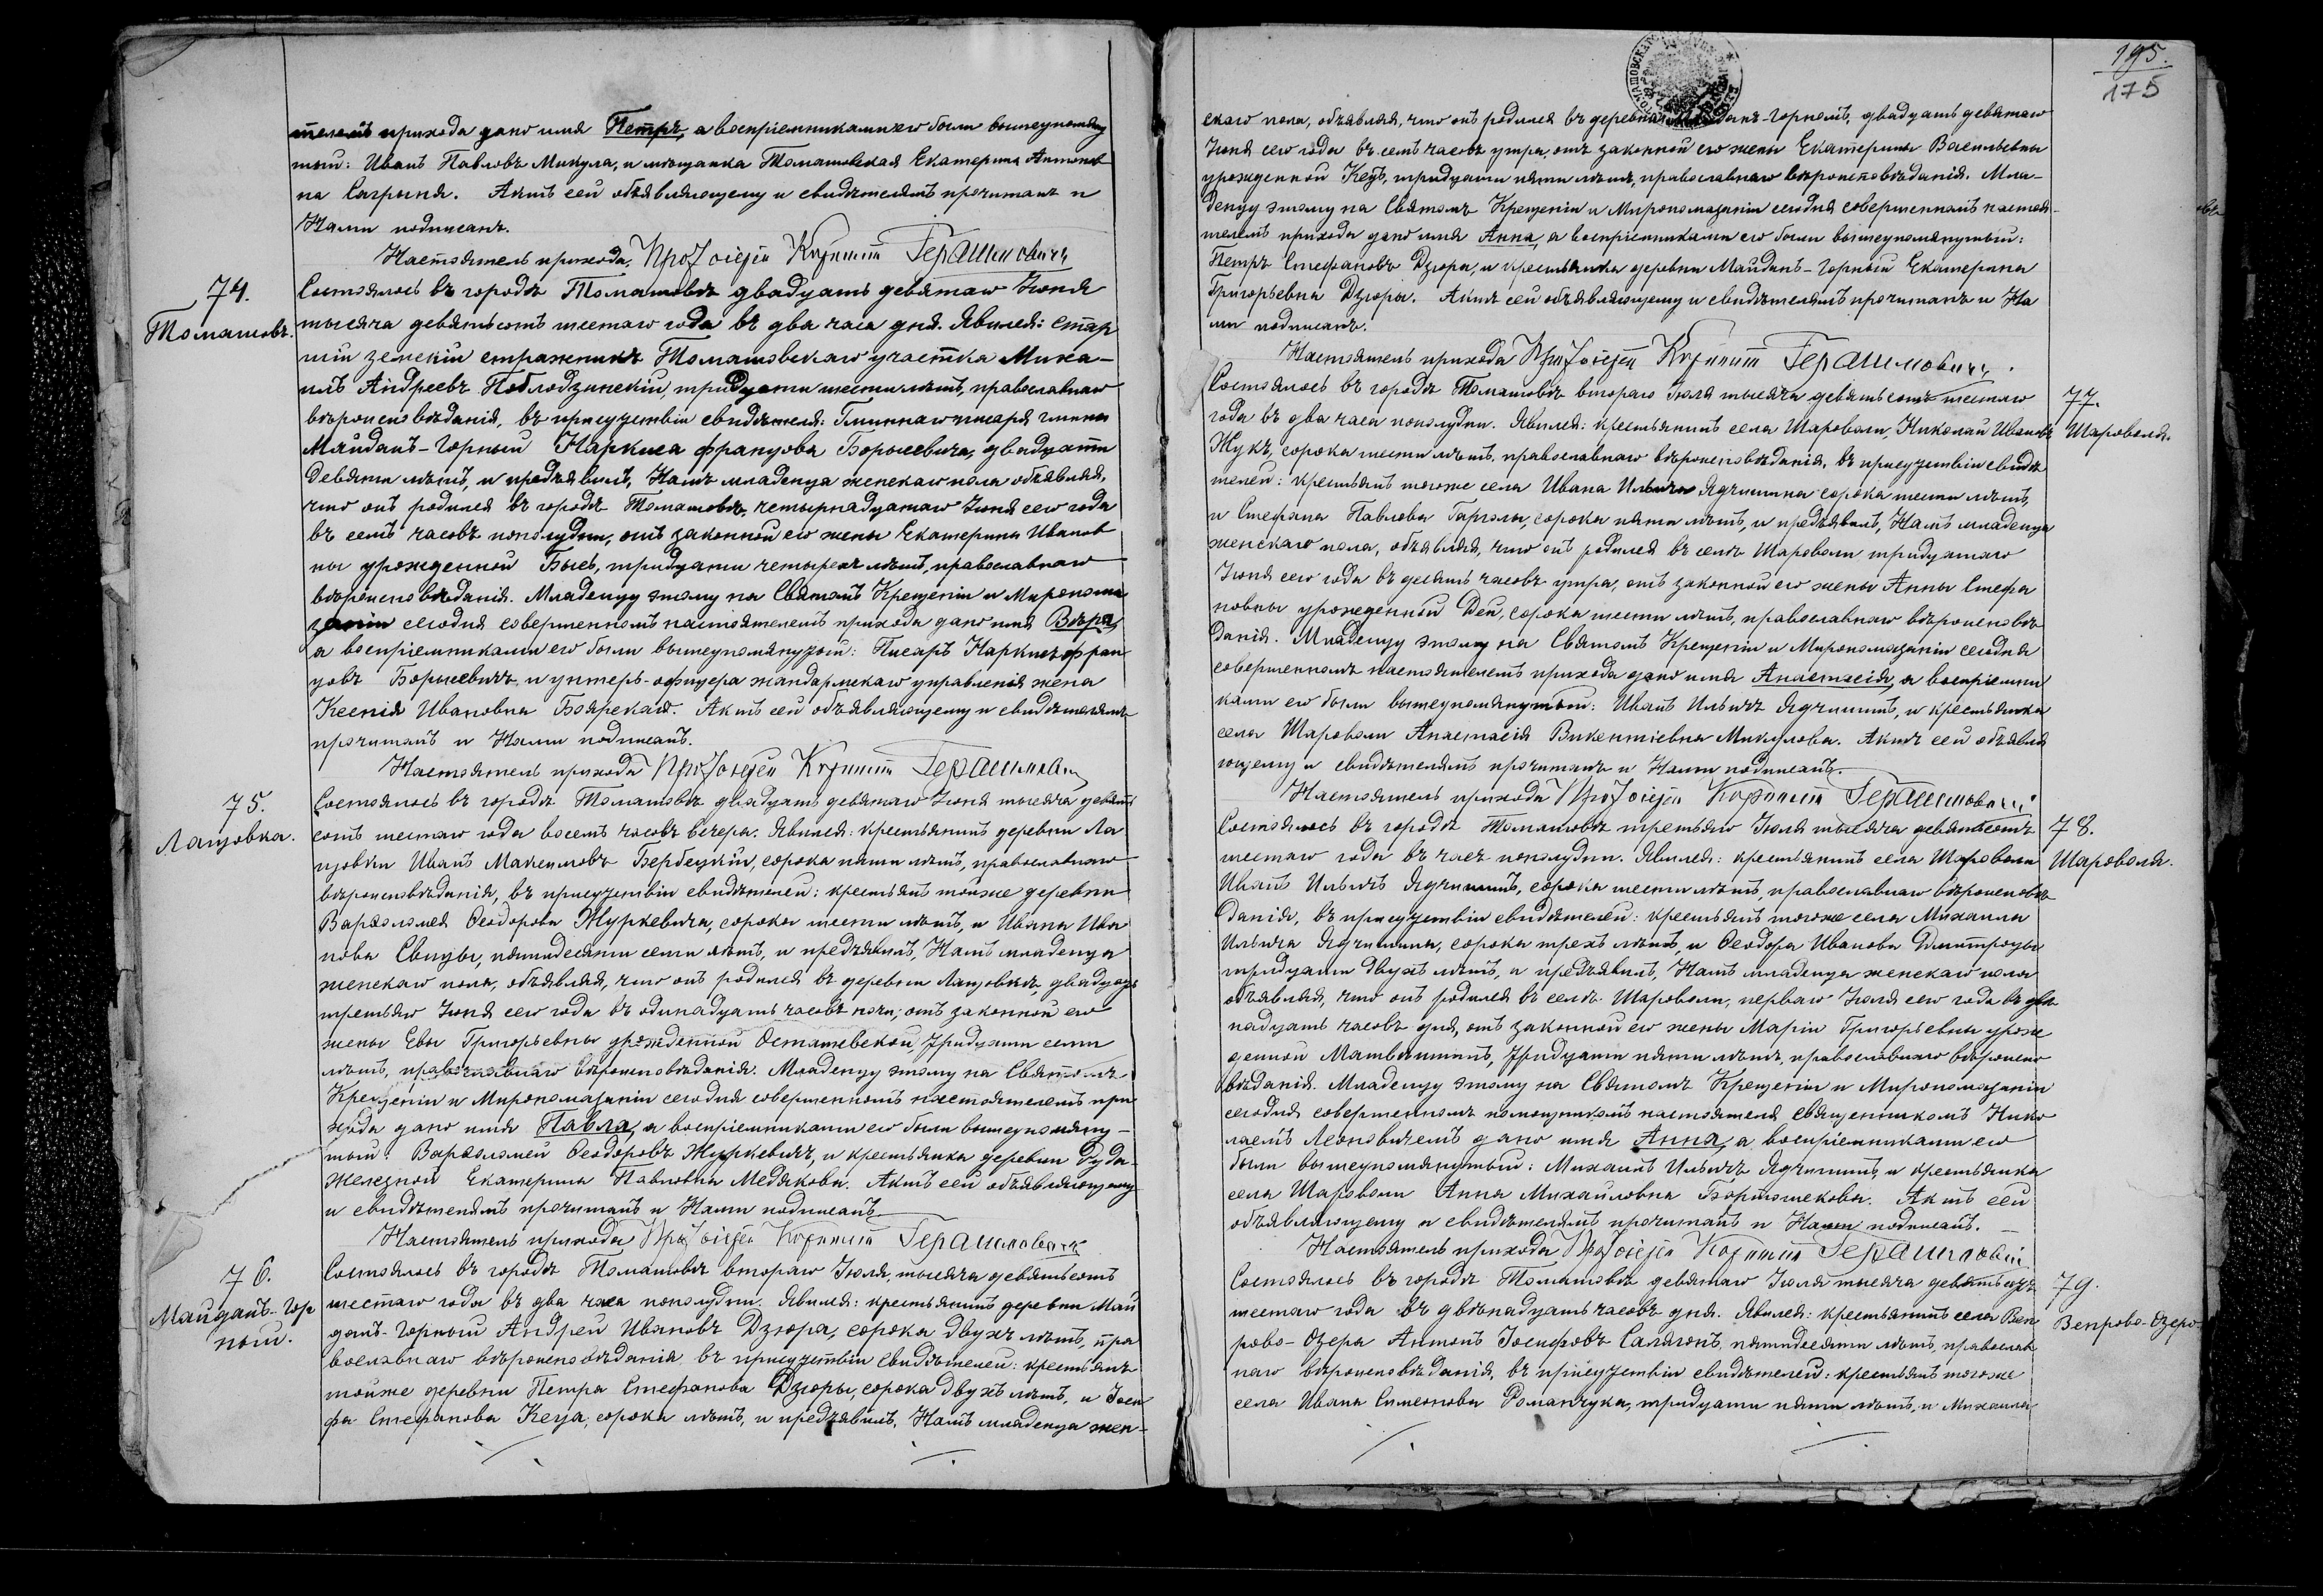 телемъ прихода дано имя Петръ, а воспріемниками его были вышеупомяну
тый: Иванъ Павловъ Микула, и мѣщанка Томашовская Екатерина Антонов
на Сагрыня. Актъ сей объявляющему и свидѣтелямъ прочитанъ и
Нами подписанъ.
Настоятель прихода, Протоіерей Корнилій Герасимовичъ
74.
Томашовъ.
Состоялось въ городѣ Томашовѣ двадцать девятаго Іюня
тысяча девятьсотъ шестаго года въ два часа дня. Явился: стар
шій земскій стражникъ Томашовскаго участка Миха-
илъ Андреевъ Поблодзинскій, тридцати шести лѣтъ, православнаго
вѣроисповѣданія, въ присутствіи свидѣтеля: Гминнаго писаря гмины
Майданъ-Горный Наркиса Францова Борысевича, двадцати
девяти лѣтъ, и предъявилъ Намъ младенца женскаго пола объявляя,
что онъ родился въ городѣ Томашовѣ, четырнадцатаго Іюня сего года
въ семь часовъ пополудни, отъ законной его жены Екатерины Иванов
ны урожденной Бысь, тридцати четырехъ лѣтъ, православнаго
вѣроисповѣданія. Младенцу этому на Святомъ Крещеніи и Миропома
заніи сегодня совершенномъ настоятелемъ прихода дано имя Вѣра,
а воспріемниками его были вышеупомянутый: Писарь Наркисъ Фран
цовъ Борысевичъ, и унтеръ-офицера жандармскаго управленія жена
Ксенія Ивановна Боярская. Актъ сей объявляющему и свидѣтелямъ
прочитанъ и Нами подписанъ.
Настоятель прихода Протоіерей Корнилій Герасимовичъ
75.
Лащовка.
Состоялось въ городѣ Томашовѣ двадцать девятаго Іюня тысяча девять
сотъ шестаго года восемь часовъ вечера. Явился: крестьянинъ деревни Ла
щовки Иванъ Максимовъ Бербецкій, сорока пяти лѣтъ, православнаго
вѣроисповѣданія, въ присутствіи свидѣтелей: крестьянъ тойже деревни
Варѳоломея Ѳеодорова Журкевича, сорока шести лѣтъ, и Ивана Ива
нова Свищы, пятидесяти семи лѣтъ, и предъявилъ Намъ младенца
женскаго пола, объявляя, что онъ родился въ деревни Лащовкѣ, двадцать
третьяго Іюня сего года въ одинадцать часовъ ночи, отъ законной его
жены Евы Григорьевны урожденной Осташевской, тридцати семи
лѣтъ, православнаго вѣроисповѣданія. Младенцу этому на Святомъ
Крещеніи и Миропомазаніи сегодня совершенномъ настоятелемъ при
хода дано имя Павла, а воспріемниками его были вышеупомяну-
тый: Варѳоломей Ѳеодоровъ Журкевичъ, и крестьянка деревни Руда-
Железной Екатерина Павловна Медякова. Актъ сей объявляющему
и свидѣтелямъ прочитанъ и Нами подписанъ.
Настоятель прихода Протоіерей Корнилій Герасимовичъ
76.
Майданъ-Гор
ный.
Состоялось въ городѣ Томашовѣ втораго Іюля, тысяча девятьсотъ
шестаго года въ два часа пополудни. Явился: крестьянинъ деревни Май
данъ-Горный Андрей Ивановъ Дзюра, сорока двухъ лѣтъ, пра
вославнаго вѣроисповѣданія въ присутствіи свидѣтелей: крестьянъ
тойже деревни Петра Стефанова Дзюры, сорока двухъ лѣтъ, и Іоси
фа Стефанова Кеца, сорока лѣтъ, и предъявилъ Намъ младенца жен-
195.
175
скаго пола, объявляя, что онъ родился въ деревни Майданъ-Горномъ, двадцать девятаго
Іюня сего года въ семь часовъ утра, отъ законной его жены Екатерины Васильевны
урожденной Кецъ, тридцати пяти лѣтъ, православнаго вѣроисповѣданія. Мла-
денцу этому на Святомъ Крещеніи и Миропомазаніи сегодня совершенномъ настоя-
телемъ прихода дано имя Анна, а воспріемниками его были вышеупомянутый:
Петръ Стефановъ Дзюра, и крестьянка деревни Майданъ-Горный Екатерина
Григорьевна Дзюры. Актъ сей объявляющему и свидѣтелямъ прочитанъ и На
ми подписанъ.
Настоятель прихода Протоіерей Корнилій Герасимовичъ.
77.
Шароволя.
Состоялось въ городѣ Томашовѣ втораго Іюля тысяча девятьсотъ шестаго
года въ два часа пополудни. Явился: крестьянинъ села Шароволи, Николай Ивановъ
Жукъ, сорока шести лѣтъ, православнаго вѣроисповѣданія, въ присутствіи свидѣ
телей: крестьянъ тогоже села Ивана Ильича Ядчишина сорока шести лѣтъ,
и Стефана Павлова Гаргалы, сорока пяти лѣтъ, и предъявилъ Намъ младенца
женскаго пола, объявляя, что онъ родился въ селѣ Шароволи тридцатаго
Іюня сего года въ десять часовъ утра, отъ законной его жены Анны Стефа
новны урожденной Дей, сорока шести лѣтъ, православнаго вѣроисповѣ
данія. Младенцу этому на Святомъ Крещеніи и Миропомазаніи сегодня
совершенномъ настоятелемъ прихода дано имя Анастасія, а воспріемни
ками его были вышеупомянутый: Иванъ Ильичъ Ядчишинъ, и крестьянка
села Шароволи Анастасія Викентіевна Микулова. Актъ сей объявля
ющему и свидѣтелямъ прочитанъ и Нами подписанъ.
Настоятель прихода Протоіерей Корнилій Герасимовичъ
78.
Шароволя.
Состоялось въ городѣ Томашовѣ третьяго Іюля тысяча девятьсотъ
шестаго года въ часъ пополудни. Явился: крестьянинъ села Шароволи
Иванъ Ильичъ Ядчишинъ, сорока шести лѣтъ, православнаго вѣроисповѣ
данія, въ присутствіи свидѣтелей: крестьянъ тогоже села Михаила
Ильича Ядчишина, сорока трехъ лѣтъ, и Ѳеодора Иванова Дмитроцы
тридцати двухъ лѣтъ, и предъявилъ Намъ младенца женскаго пола
объявляя, что онъ родился въ селѣ Шароволи, перваго Іюля сего года въ две
надцать часовъ дня, отъ законной его жены Маріи Григорьевны урож
денной Матвишинъ, тридцати пяти лѣтъ, православнаго вѣроиспо
вѣданія. Младенцу этому на Святомъ Крещеніи и Миропомазаніи
сегодня совершенномъ помощникомъ настоятеля священникомъ Нико
лаемъ Леоновичемъ дано имя Анна, а воспріемниками его
были вышеупомянутый: Михаилъ Ильичъ Ядчишинъ, и крестьянка
села Шароволи Анна Михайловна Бартошекова. Актъ сей
объявляющему и свидѣтелямъ прочитанъ и Нами подписанъ.
Настоятель прихода Протоіерей Корнилій Герасимовичъ
79.
Вепрово-Озеро
Состоялось въ городѣ Томашовѣ девятаго Іюля тысяча девятьсотъ
шестаго года въ двѣнадцать часовъ дня. Явился: крестьянинъ села Веп
рово-Озера Антонъ Іосифовъ Салагонъ, пятидесяти лѣтъ, православ
наго вѣроисповѣданія, въ присутствіи свидѣтелей: крестьянъ тогоже
села Ивана Симеонова Романчука, тридцати пяти лѣтъ, и Михаила